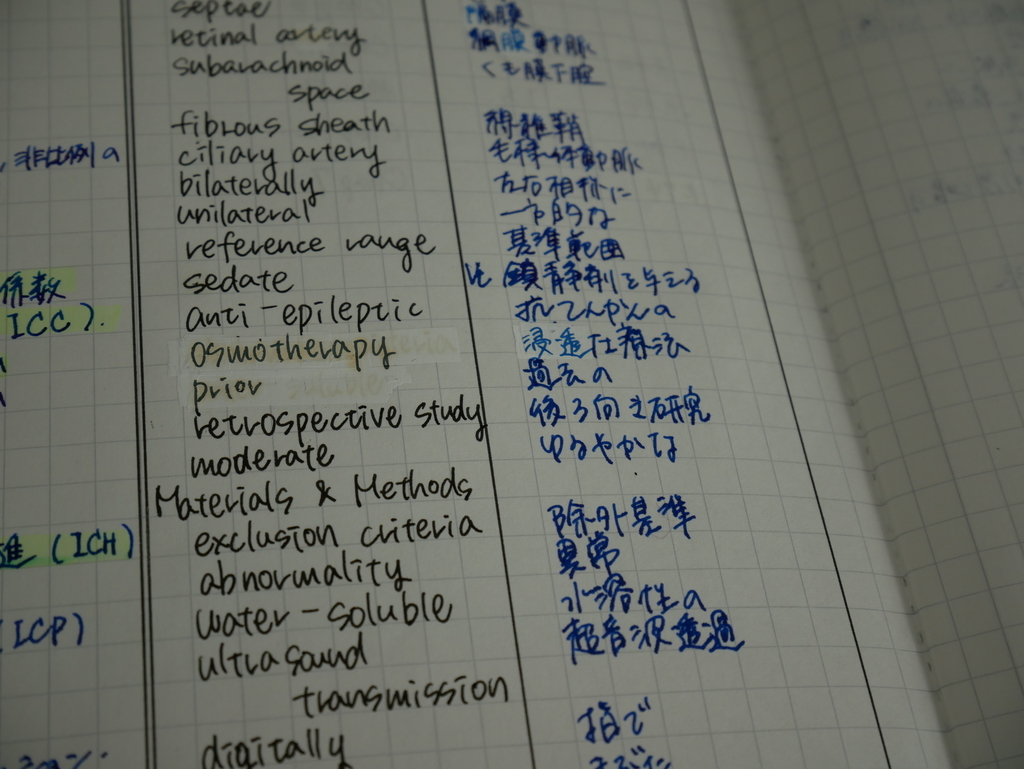 septae 隔膜
retinal artery 網膜動脈
subarachnoid くも膜下腔
space
fibrous sheath 線維鞘
、非比例の ciliary artery 毛様体動脈
bilaterally 左右相称に
unilateral 一方的な
reference range 基準範囲
係数 sedate vt 鎮静剤を与える
ICC). anti-epileptic 抗てんかんの
osmotherapy 浸透圧療法
prior 過去の
retrospective study 後ろ向き研究
moderate ゆるやかな
Materials & Methods
進 (ICH) exclusion criteria 除外基準
abnormality 異常
water-soluble 水溶性の
(ICP) ultrasound 超音波透過
transmission
digitally 指で